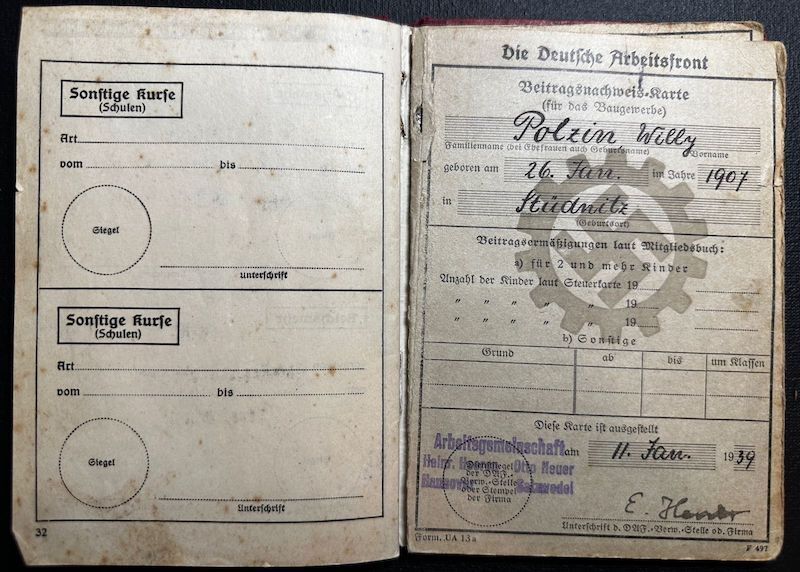 Sonstige Kurse
(Schulen)
Art
vom bis
Siegel
Unterschrift
Sonstige Kurse
(Schulen)
Art
vom bis
Siegel
Unterschrift
32
Die Deutsche Arbeitsfront
Beitragsnachweis-Karte
(für das Baugewerbe)
Polzin Willy
Familienname (bei Ehefrauen auch Geburtsname) Vorname
geboren am 26. Jan. im Jahre 1907
in Stüdnitz
(Geburtsort)
Beitragsermäßigungen laut Mitgliedsbuch:
a) für 2 und mehr Kinder
Anzahl der Kinder laut Steuerkarte 19
" " " " " 19
" " " " " 19
b) Sonstige
Grund ab bis um Klassen
Diese Karte ist ausgestellt
am 11. Jan. 1939
Arbeitsgemeinschaft
Heinr. Otto Neuer
Salzwedel
Dienstsiegel
der DAF.-
Verw.-Stelle
oder Stempel
der Firma
E.
Unterschrift d. DAF.-Verw.-Stelle od. Firma
Form. UA 13a
F 497